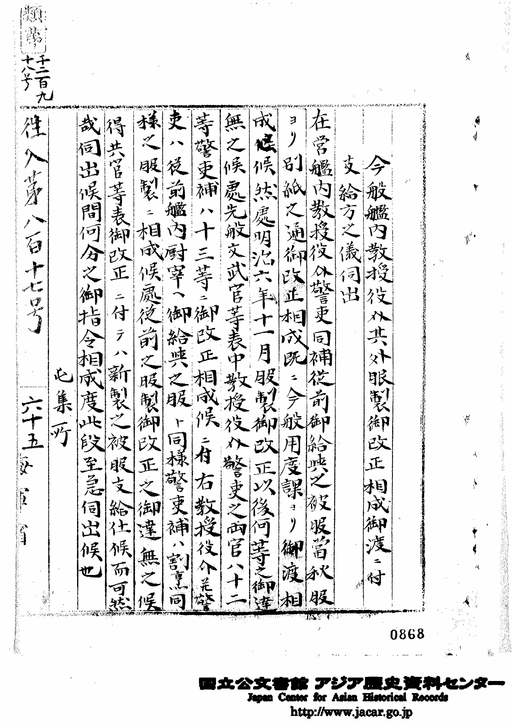 類第
千二百九
十八号
今般艦内教授役介其外服製御改正相成御渡ニ付
支給方之儀伺出
在営艦内教授役介警吏同補従前御給与之被服当秋服
ヨリ別紙之通御改正相成既ニ今般用度課ヨリ御渡相
成候然処明治六年十一月服製御改正以後何等之御達
無之候処先般文武官等表中教授役介警吏之両官ハ十二
等警吏補ハ十三等ニ御改正相成候ニ付右教授役介並警
吏ハ従前艦内厨宰ヘ御給与之服ト同様警吏補ハ割烹同
様之服製ニ相成候処従前之服製御改正之御達無之候
得共官等表御改正ニ付テハ新製之被服支給仕候而可然
哉伺出候間何分之御指令相成度此段至急伺出候也
往入第八百十七号
屯集所
六十五
海軍省
0868
国立公文書館 アジア歴史資料センター
Japan Center for Asian Historical Records
http://www.jacar.go.jp